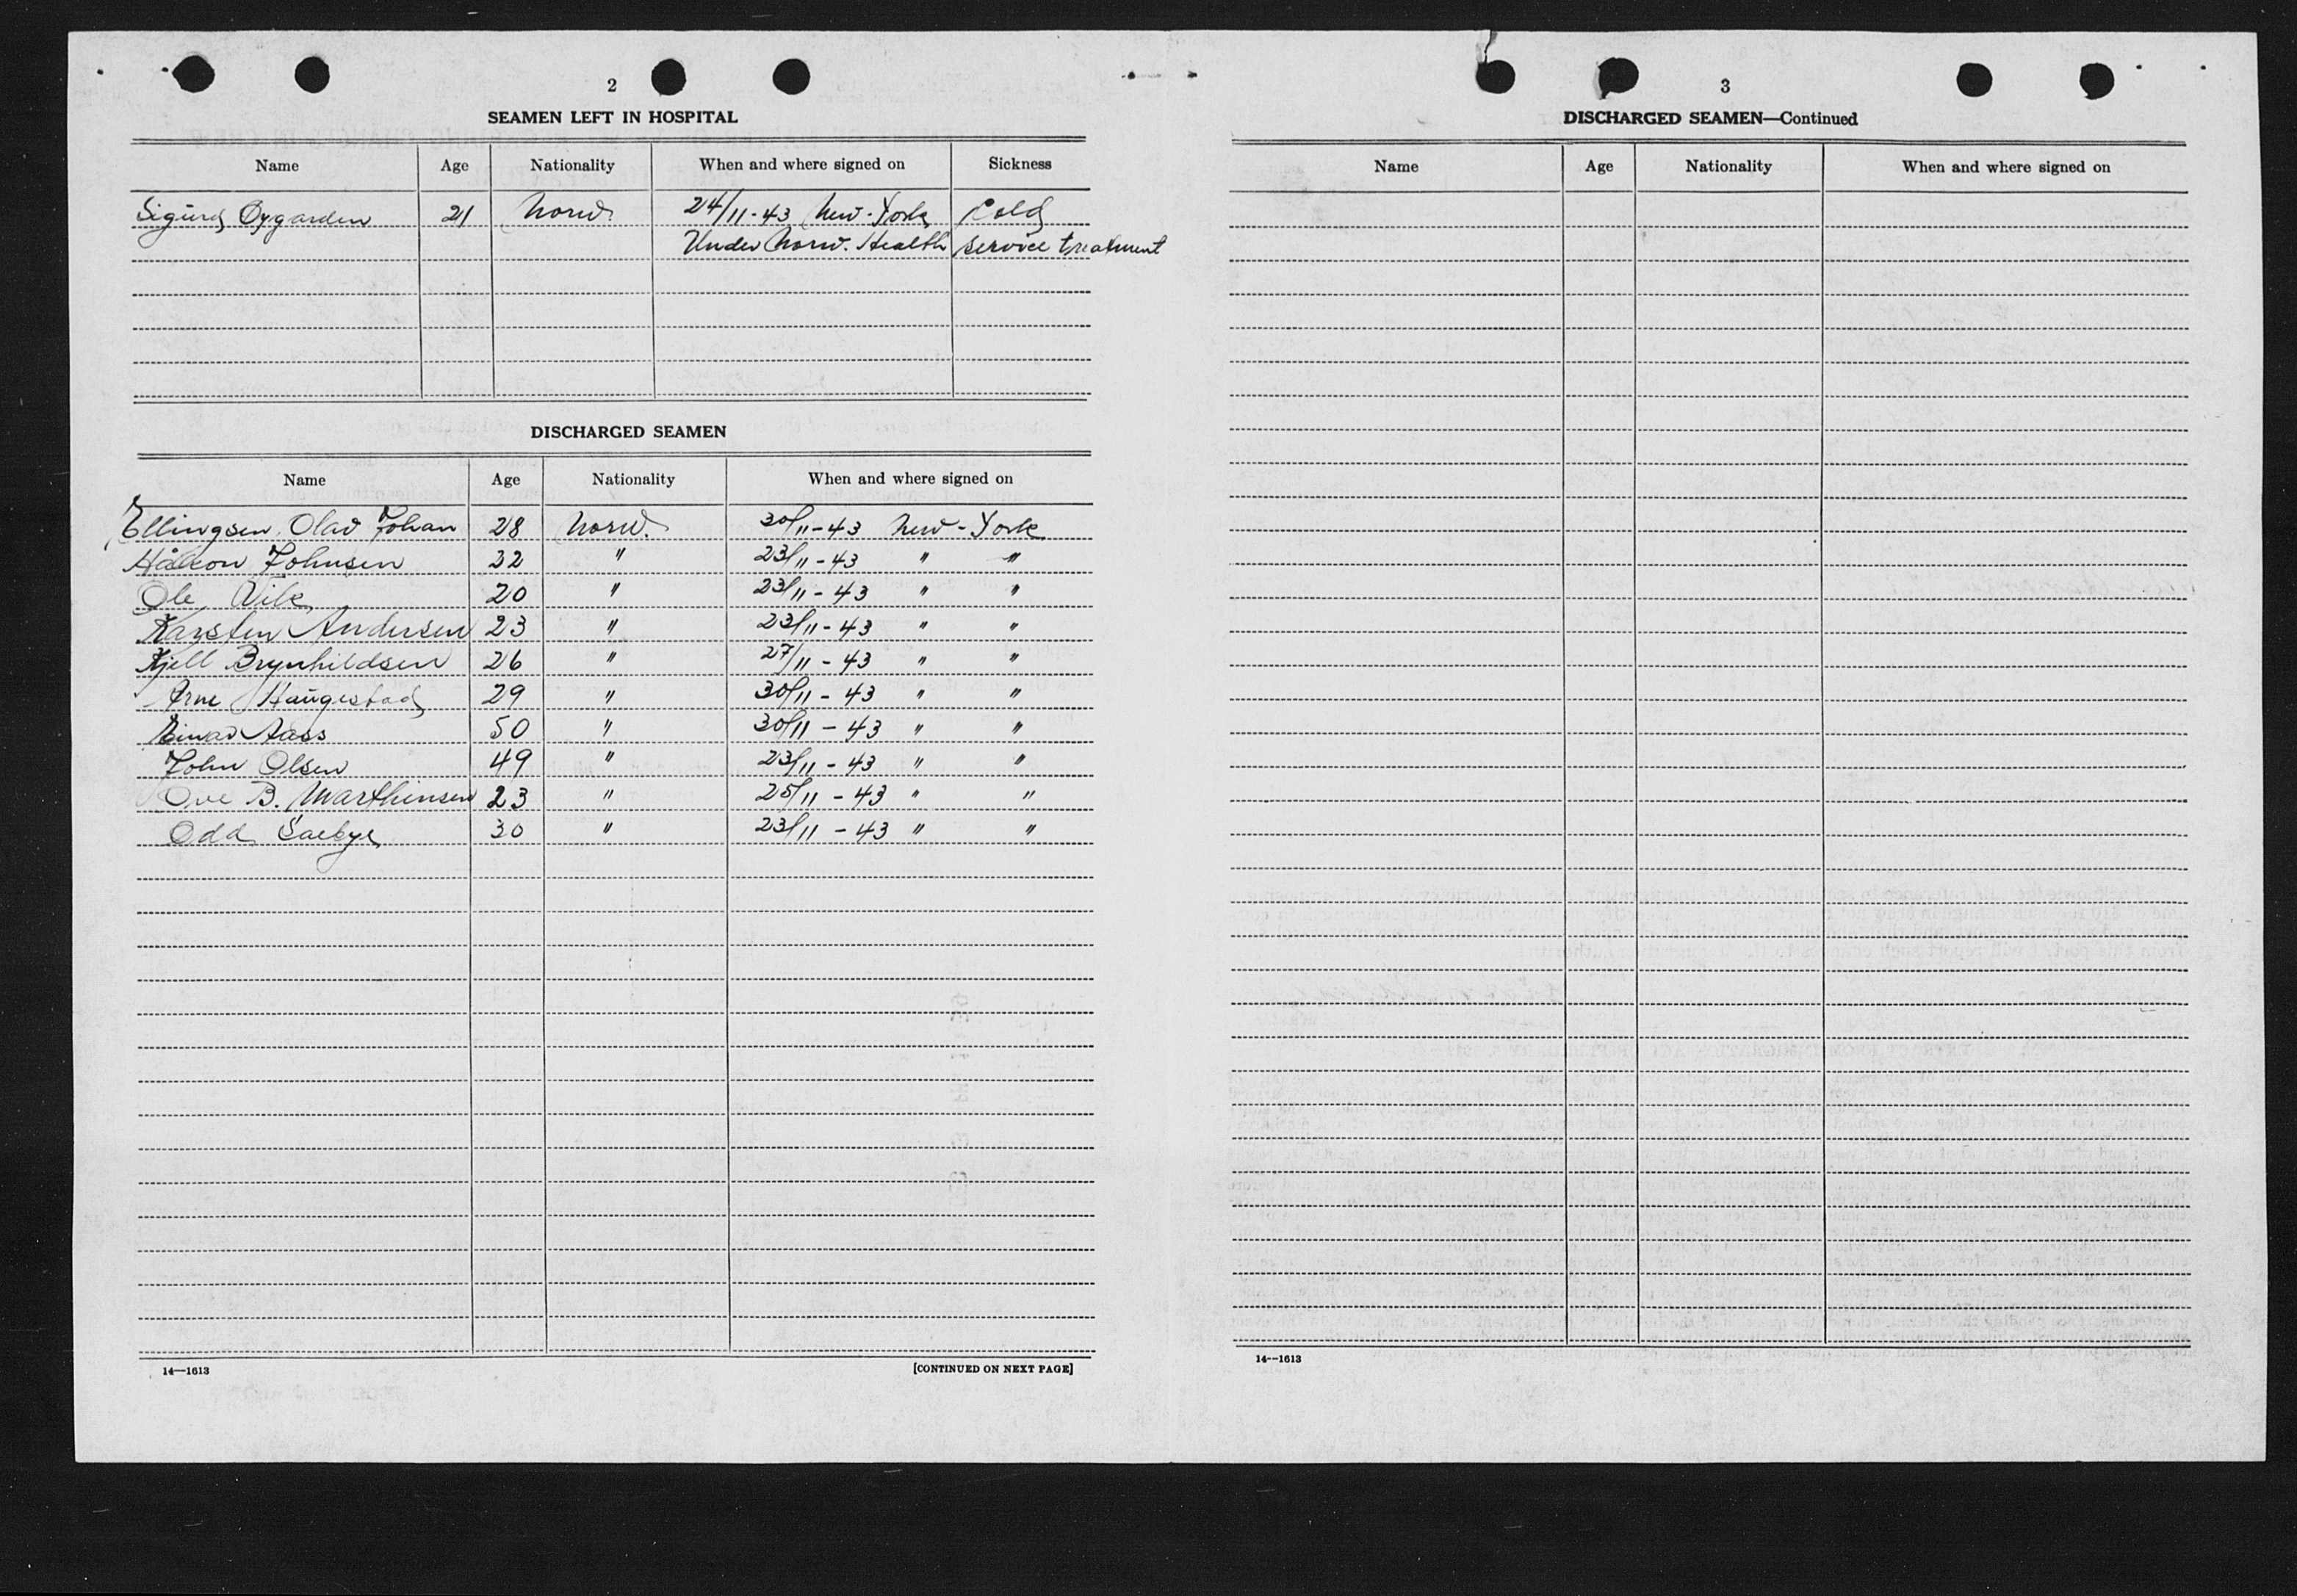 2
SEAMEN LEFT IN HOSPITAL
Name Age Nationality When and where signed on Sickness
Sigurd Oygarden 21 Norw. 24/11-43 New-York Cold
Under Norw. Health service treatment
DISCHARGED SEAMEN
Name Age Nationality When and where signed on
Ellingsen, Olav Johan 28 Norw. 30/11-43 New-York
Håkon Johnsen 32 " 23/11-43 " "
Ole Vik 20 " 23/11-43 " "
Karsten Andersen 23 " 23/11-43 " "
Kjell Brynhildsen 26 " 27/11-43 " "
Arne Haugestad 29 " 30/11-43 " "
Einar Aass 50 " 30/11-43 " "
John Olsen 49 " 23/11-43 " "
Ove B. Marthinsen 23 " 25/11-43 " "
Odd Saebye 30 " 23/11-43 " "
14—1613 [CONTINUED ON NEXT PAGE]
3
DISCHARGED SEAMEN—Continued
Name Age Nationality When and where signed on
14--1613